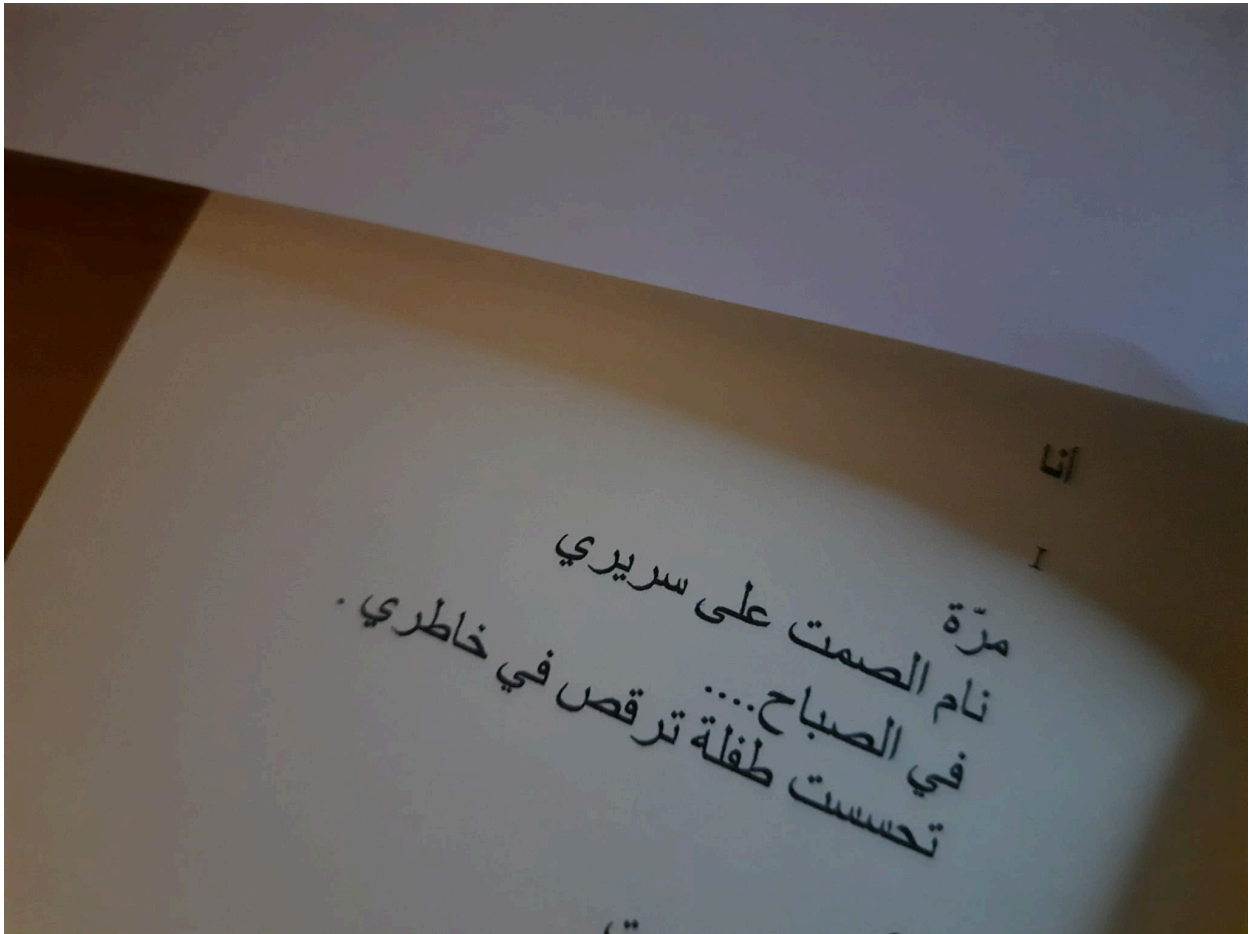 أنا
I
مرّة
نام الصمت على سريري
في الصباح....
تحسست طفلة ترقص في خاطري .